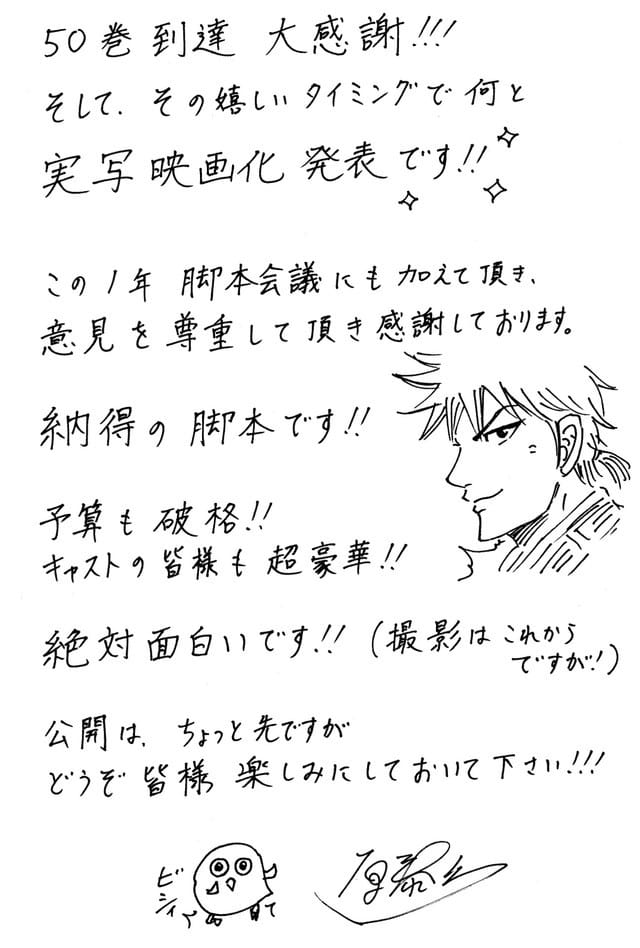 50巻到達 大感謝!!!
そして、その嬉しいタイミングで何と
実写映画化 発表です!!
この1年 脚本会議にも加えて頂き、
意見を尊重して頂き感謝しております。
納得の脚本です!!
予算も破格!!
キャストの皆様も超豪華!!
絶対面白いです!! (撮影はこれから
ですが!)
公開は、ちょっと先ですが
どうぞ皆様 楽しみにしておいて下さい!!!
ビシィ
原泰久